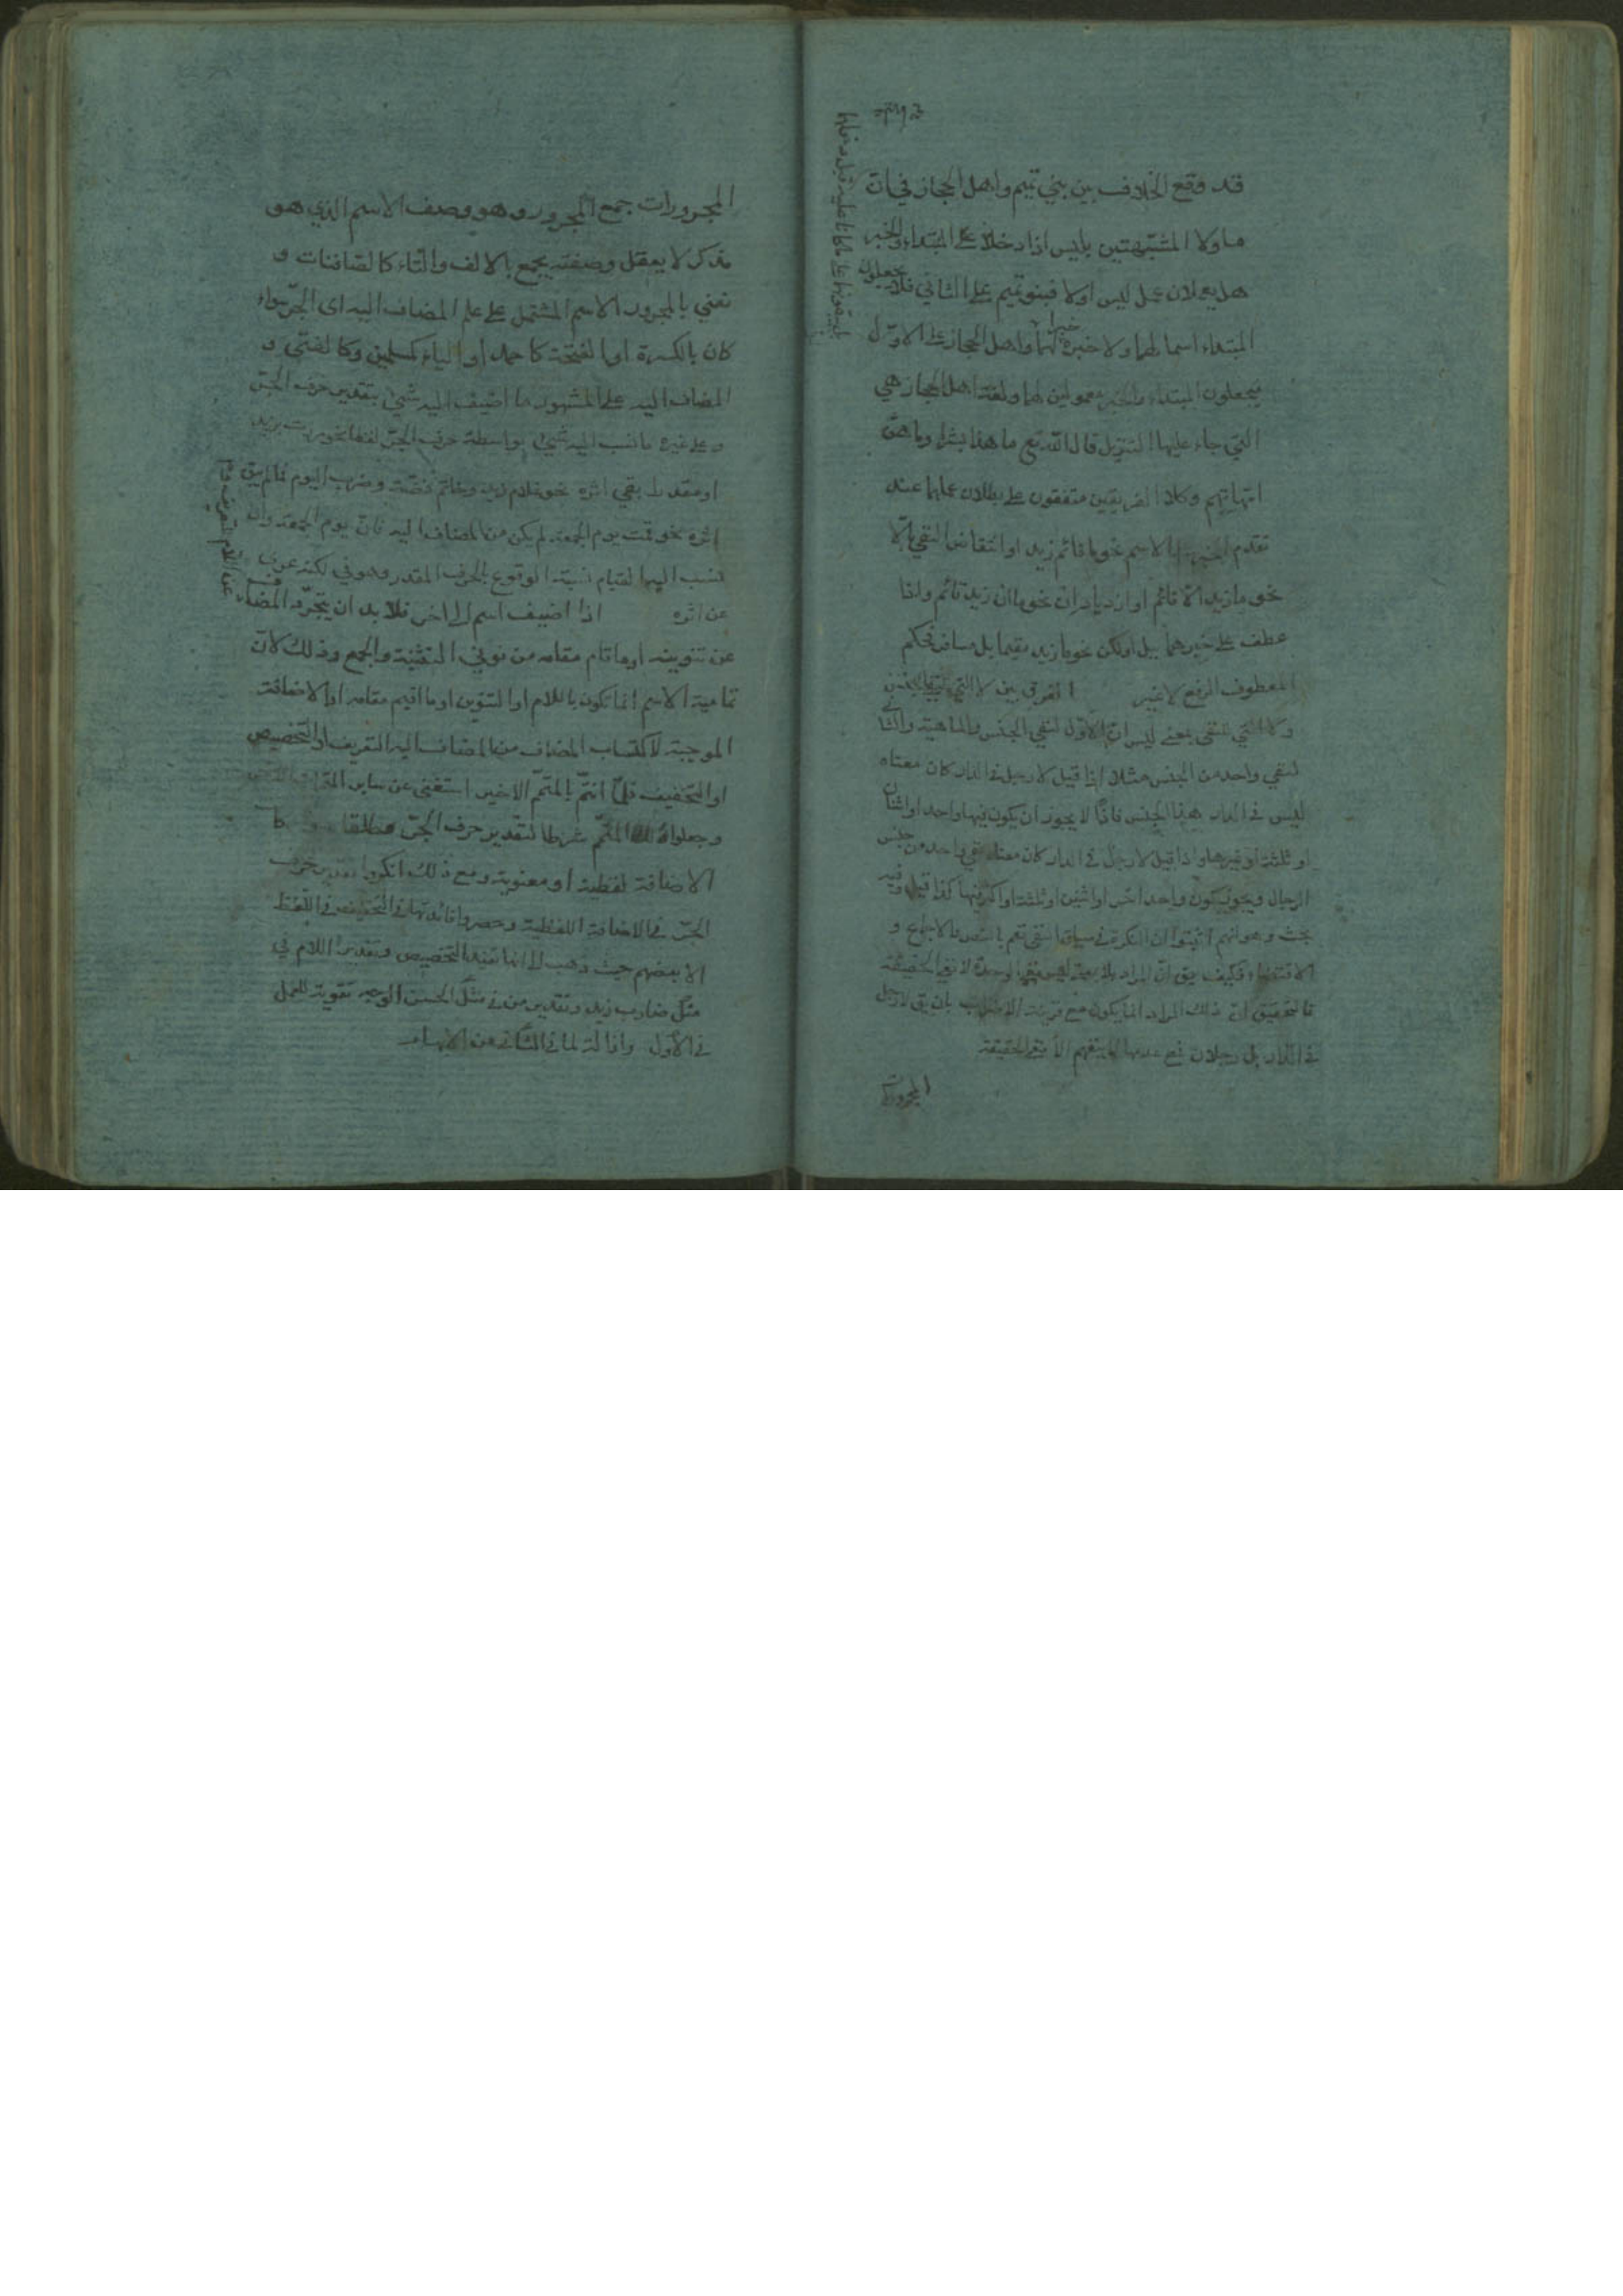 قد وقع الخلاف بين بني تميم واهل الحجاز في ان
ما ولا المشبّهتين بليس اذا دخلا على المبتداء والخبر
هل يعملان عمل ليس اولا فبنو تميم على الثاني فلا يجعلون
المبتداء اسما لهما ولا خبره خبرا لهما واهل الحجاز على الاوّل
فيجعلون المبتداء والخبر معمولين لهما ولغة اهل الحجاز هي
التي جاء عليها التنزيل قال الله تع ما هذا بشرا وما هنّ
امّهاتهم وكلا الفريقين متفقون على بطلان عملهما عند
تقدم الخبر على الاسم نحو ما قائم زيد او انتقاض النفي بالّا
نحو ما زيد الا قائم او ازدياد ان نحو ما ان زيد قائم واذا
عطف على خبرهما ببل او لكن نحو ما زيد مقيما بل مسافر فحكم
المعطوف الرفع لا غير الفرق بين لا التي لنفي الجنس
ولا التي للنفي بمعنى ليس انّ الاوّل لنفي الجنس والماهية والثاني
لنفي واحد من الجنس مثلا اذا قيل لا رجل في الدار كان معناه
ليس في الدار هذا الجنس فاذًا لا يجوز ان يكون فيها واحد او اثنان
او ثلثة او غيرها واذا قيل لا رجل في الدار كان معناه نفي واحد من جنس
الرجال ويجوز كون واحد اخر او اثنين او ثلثة او اكثر فيها كذا قيل وفيه
بحث وهو انهم اثبتوا ان النكرة في سياق النفي تعم بالنص والاجماع و
الاقتضاء فكيف يق انّ المراد
فالتحقيق انّ ذلك المراد انما يكون مع قرينة الاضراب بان يق لا رجل
في الدار بل رجلان فمع عدمها لا يفهم الا نفي الحقيقة
المجرورات
المجرورات جمع المجرور وهو وصف الاسم الذي هو
مذكر لا يعقل وصفته يجمع بالالف والتاء كالصافنات و
نعني بالمجرور الاسم المشتمل على علم المضاف اليه اى الجرّ سواء
كان بالكسرة او الفتحة كاحمد او الياء كمسلمين وكالفتى و
المضاف اليه على المشهور ما اضيف اليه شيئ بتقدير حرف الجرّ
وعلى غيره ما نسب اليه شيئ بواسطة حرف الجرّ لفظا نحو مررت بزيد
او مقدرا بقي اثره نحو غلام زيد وخاتم فضّة وضرب اليوم فما لم يبق
اثره نحو قمت يوم الجمعة لم يكن من المضاف اليه فانّ يوم الجمعة وان
نسب اليها القيام نسبة الوقوع بالحرف المقدر وهو في لكنه عري
عن اثره اذا اضيف اسم الى اخر فلا بد ان يتجرّد المضاف
عن تنوينه او ما قام مقامه من نوني التثنية والجمع وذلك لانّ
تمامية الاسم انما تكون باللام او التنوين او ما اقيم مقامه او الاضافة
الموجبة لاكتساب المضاف من المضاف اليه التعريف او التخصيص
او التخفيف فلمّا اتمّ بالمتمّم الاخير استغنى عن ساير
وجعلوا شرطا لتقدير حرف الجرّ مطلقا
الاضافة لفظية او معنوية ومع ذلك انكروا تقدير حرف
الجرّ في الاضافة اللفظية وحصروا فائدتها في التخفيف في اللفظ
الا بعضهم حيث ذهب الى انها تفيد التخصيص وتقدير اللام في
مثل ضارب زيد وتقدير من في مثل الحسن الوجه تقوية للعمل
في الاول وازالة لما في الثاني من الابهام